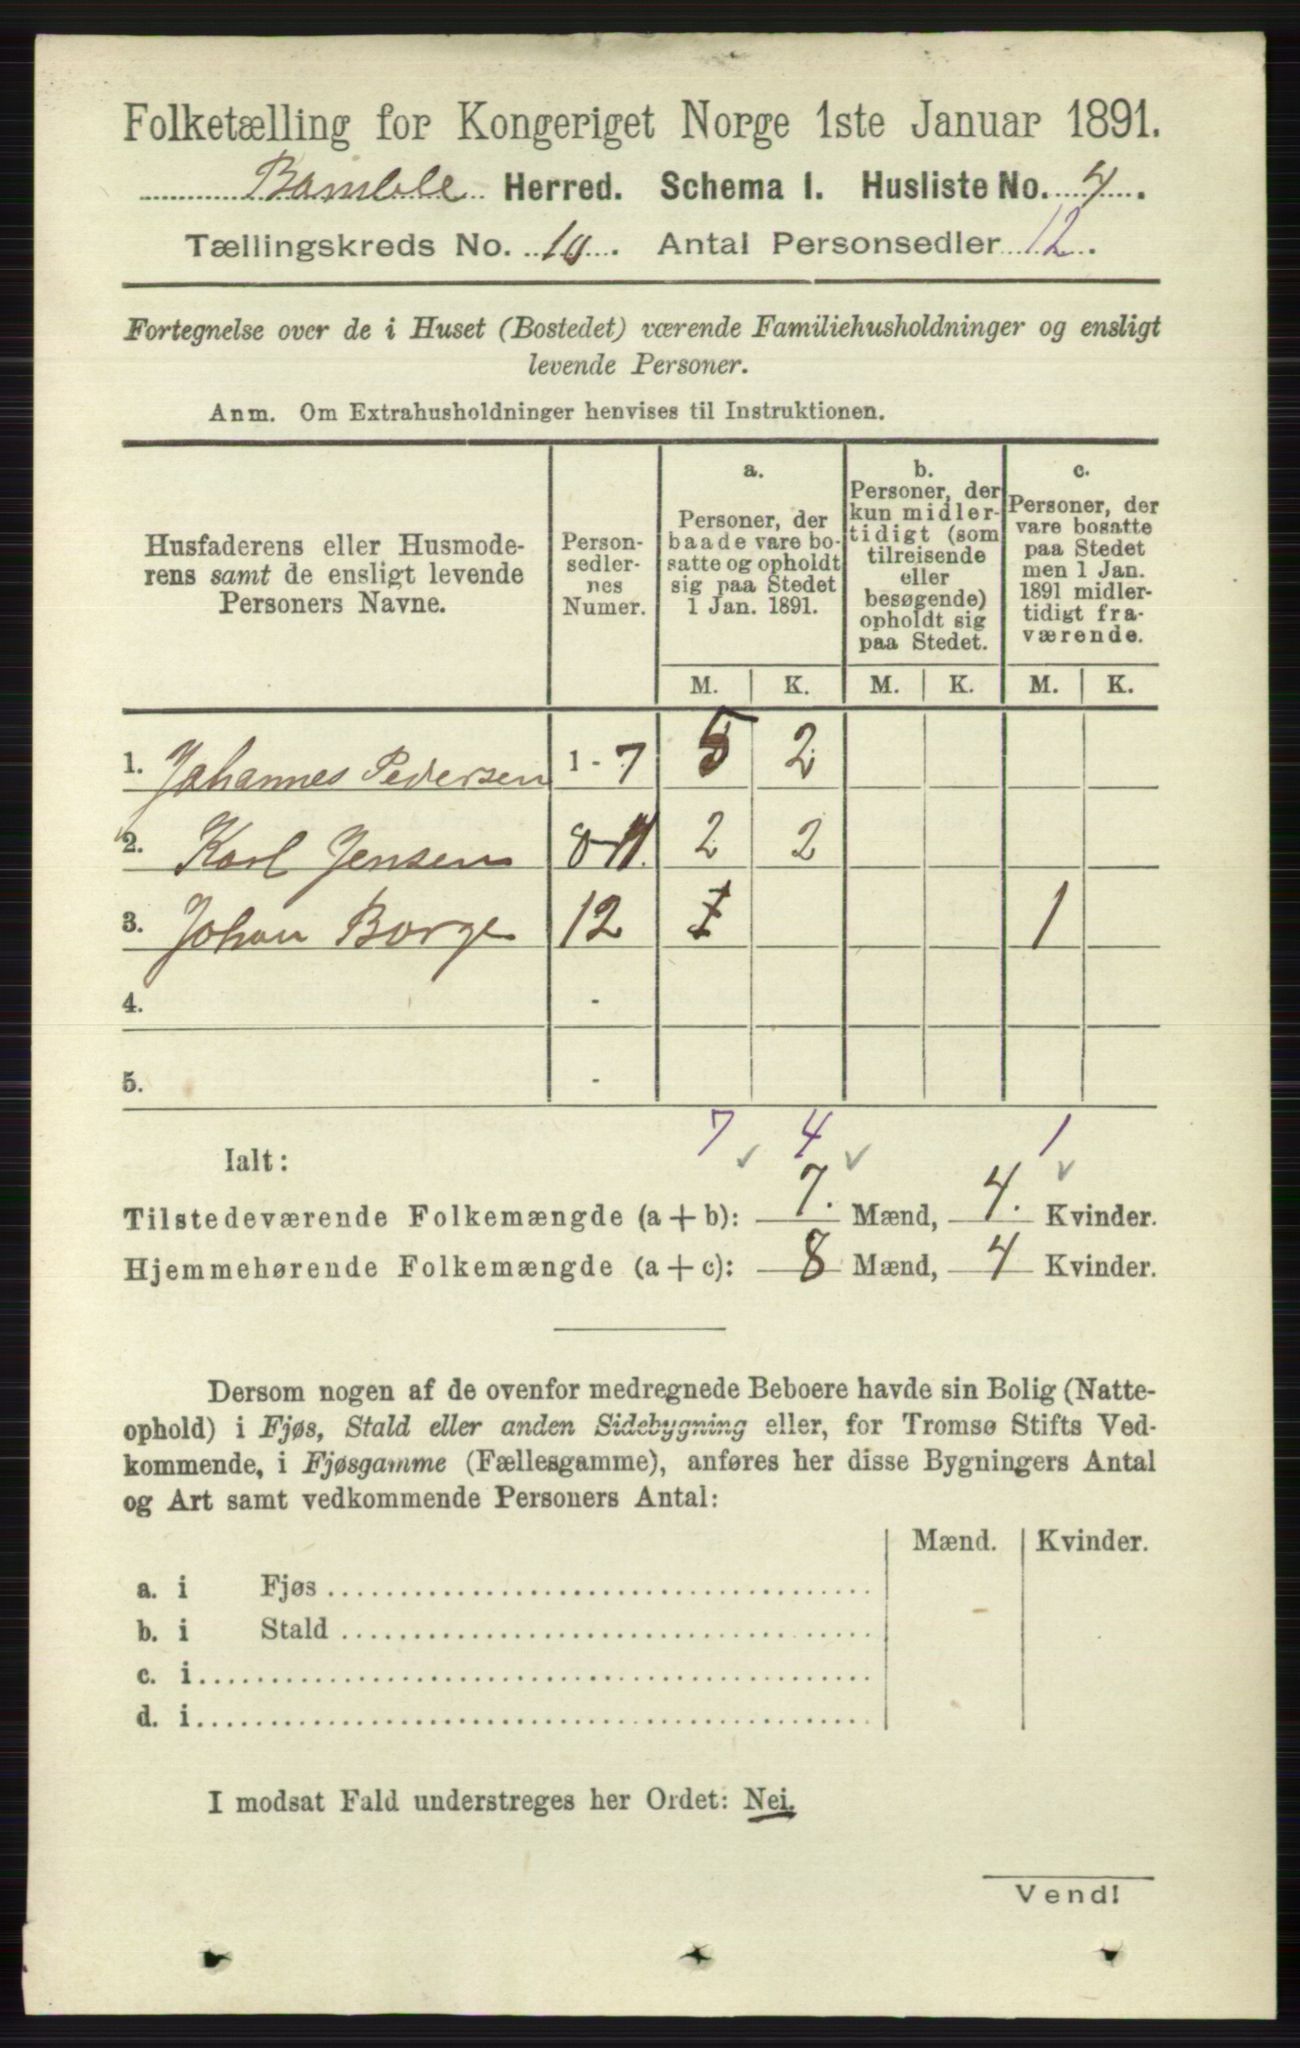 Folketælling for Kongeriget Norge 1ste Januar 1891.
Bamble Herred. Schema 1. Husliste No. 4.
Tællingskreds No. 10. Antal Personsedler 12.
Fortegnelse over de i Huset (Bostedet) værende Familiehusholdninger og ensligt
levende Personer.
Anm. Om Extrahusholdninger henvises til Instruktionen.
Husfaderens eller Husmode-
rens samt de ensligt levende
Personers Navne.
Person-
sedler-
nes
Numer.
a.
Personer, der
baade vare bo-
satte og opholdt
sig paa Stedet
1 Jan. 1891.
b.
Personer, der
kun midler-
tidigt (som
tilreisende
eller
besøgende)
opholdt sig
paa Stedet.
c.
Personer, der
vare bosatte
paa Stedet
men 1 Jan.
1891 midler-
tidigt fra-
værende.
M. K. M. K. M. K.
1. Johannes Pedersen 1 - 7 5 2
2. Karl Jensen 8-11. 2 2
3. Johan Borge 12 1 1
4. -
5. -
7 4 1
Ialt:
Tilstedeværende Folkemængde (a + b): 7. Mænd, 4. Kvinder.
Hjemmehørende Folkemængde (a + c): 8 Mænd, 4 Kvinder.
Dersom nogen af de ovenfor medregnede Beboere havde sin Bolig (Natte-
ophold) i Fjøs, Stald eller anden Sidebygning eller, for Tromsø Stifts Ved-
kommende, i Fjøsgamme (Fællesgamme), anføres her disse Bygningers Antal
og Art samt vedkommende Personers Antal:
Mænd. Kvinder.
a. i Fjøs
b. i Stald
c. i
d. i
I modsat Fald understreges her Ordet: Nei.
Vend!